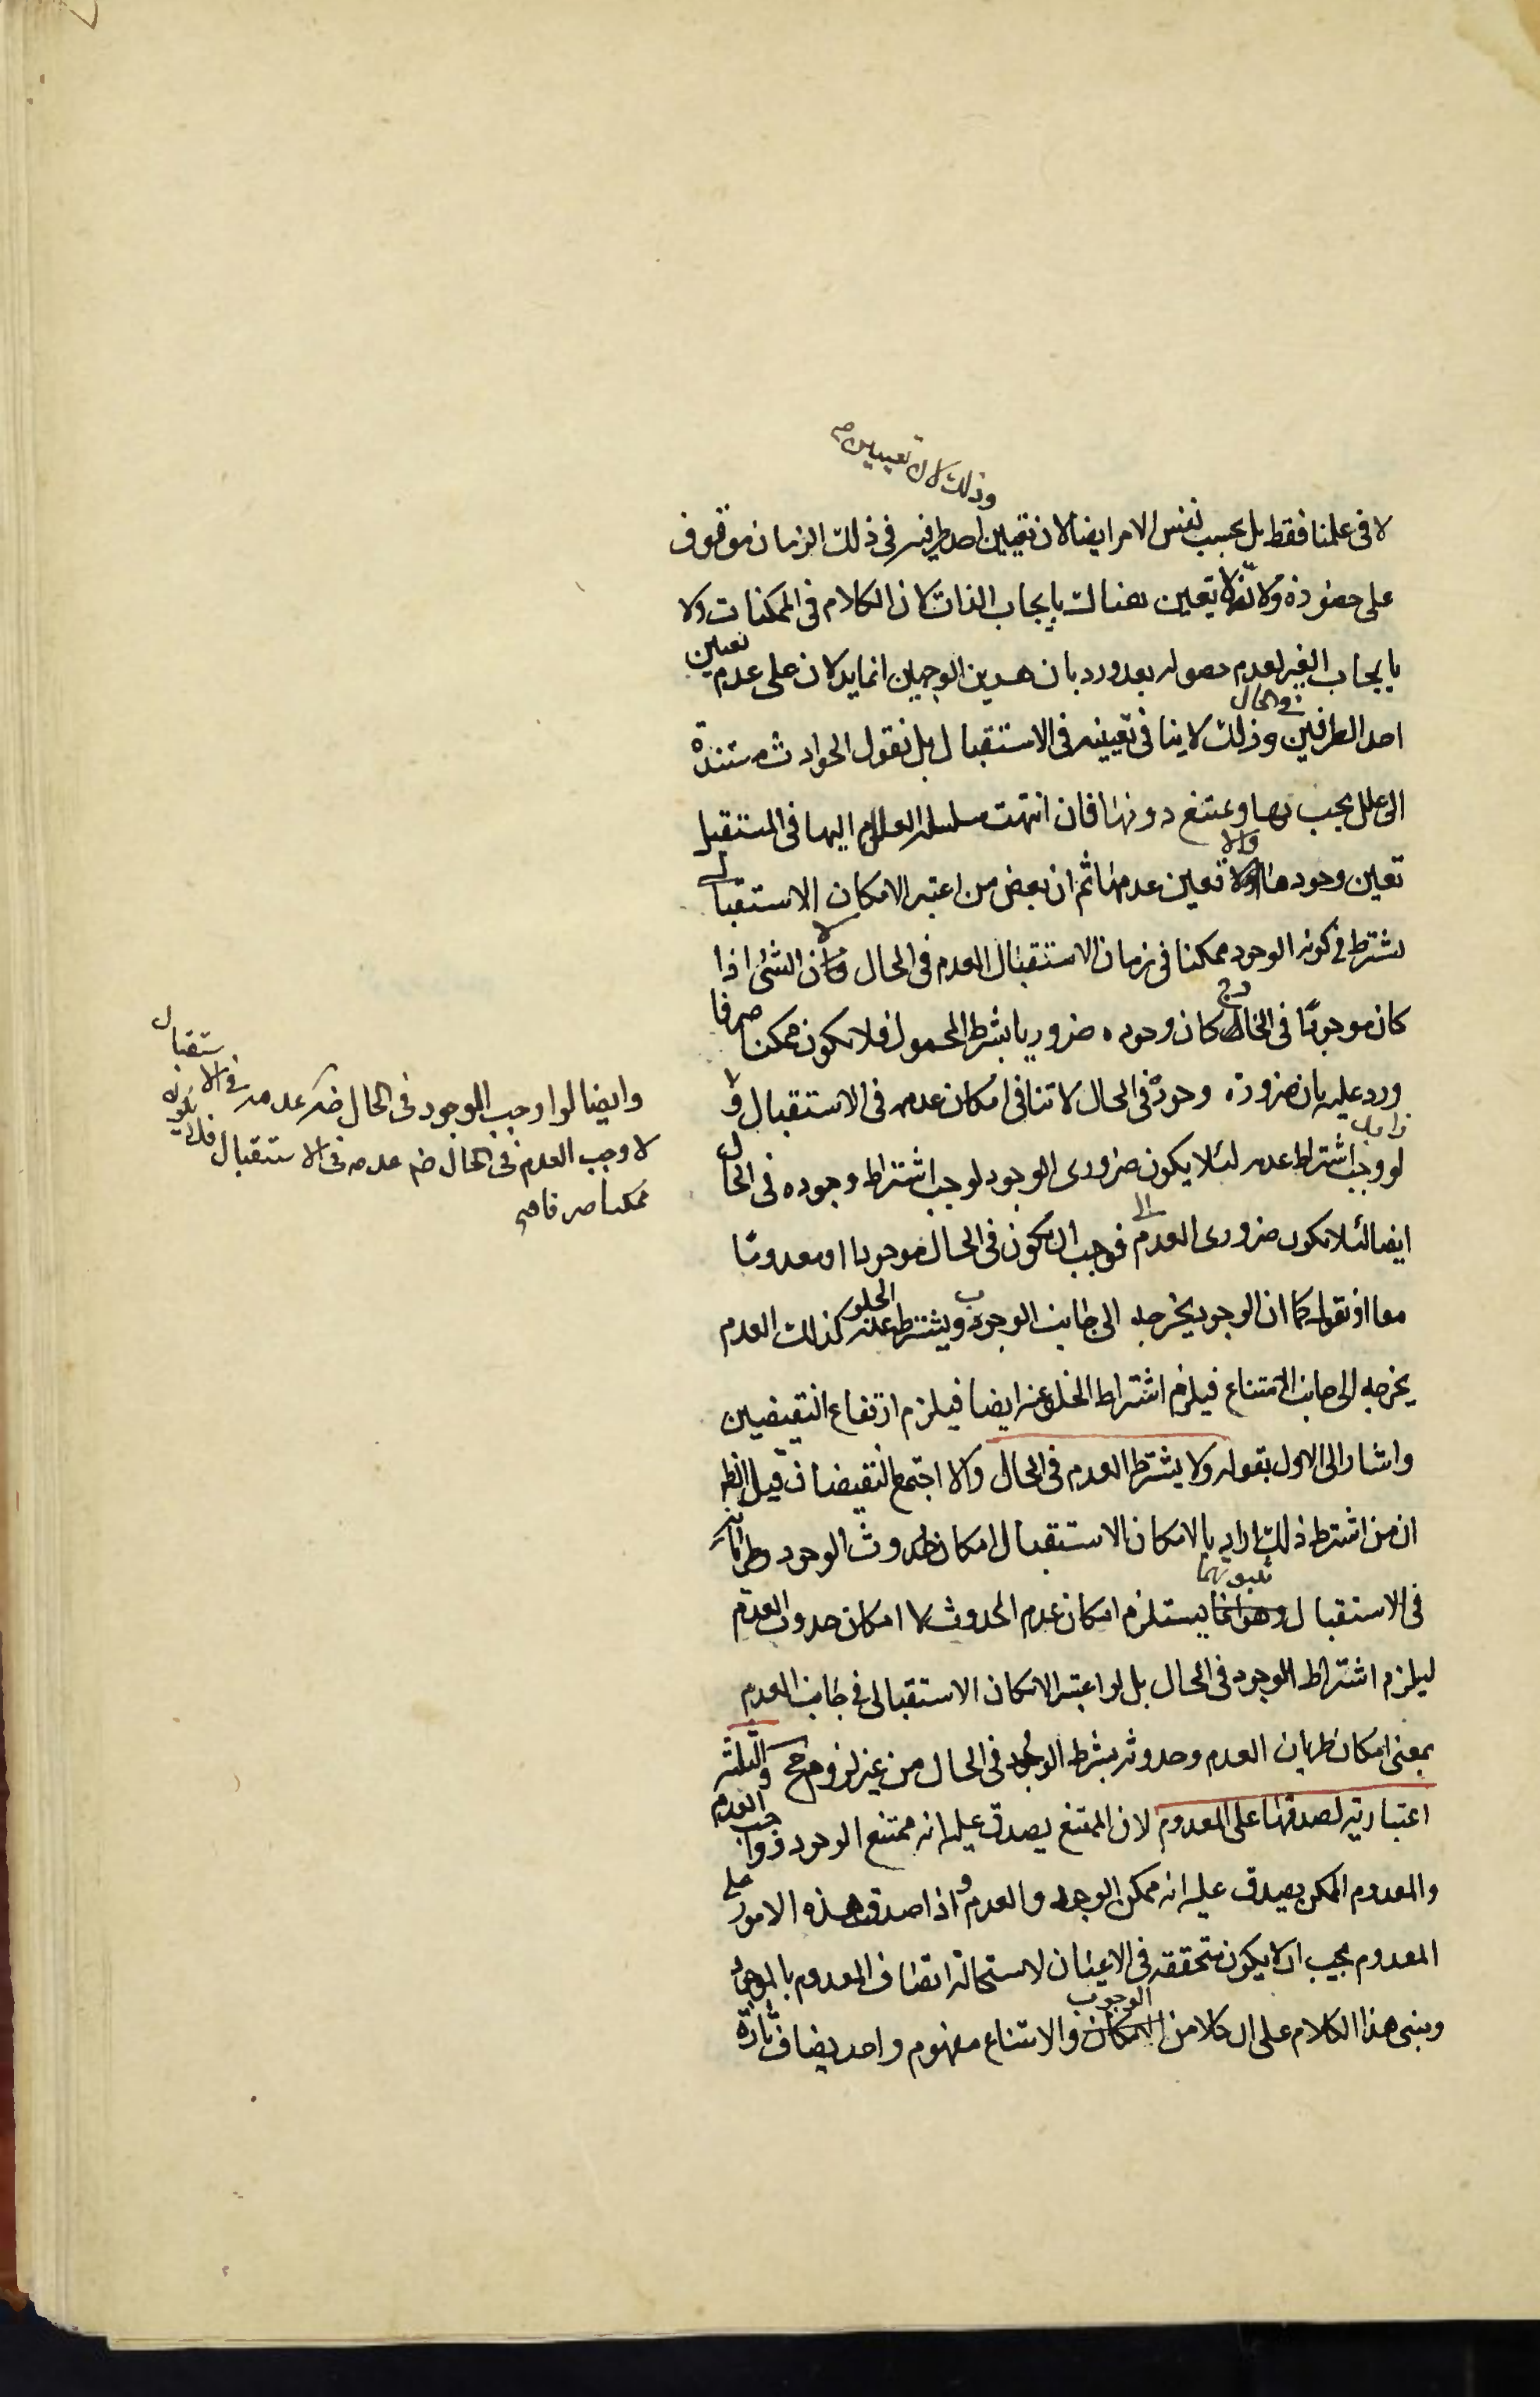 وذلك لان تعيين
لا فى علمنا فقط بل بحسب نفس الامر ايضا لان تعيين احد طرفيه فى ذلك الزمان موقوف
على حضوره ولانه لا تعين هناك بايجاب الذات لان الكلام فى الممكنات ولا
بايجاب الغير لعدم حصوله بعد ورد بان هذين الوجهين انما يدلان على عدم تعين
احد الطرفين فى الحال وذلك لا ينافى تعيينه فى الاستقبال بل نقول الحوادث مستندة
الى علل يجب بها ويمتنع دونها فان انتهت سلسلة العلل اليها فى المستقبل
تعين وجودها والا تعين عدمها ثم ان بعض من اعتبر الامكان الاستقبالى
يشترط فى كونه الوجود ممكنا فى زمان الاستقبال العدم فى الحال لان الشئ اذا
كان موجودا فى الحال كان وجوده ضروريا بشرط المحمول فلا يكون ممكنا صرفا
ورد عليه بان ضرورة وجوده فى الحال لا تنافى امكان عدمه فى الاستقبال و
لو وجب اشتراط عدمه لئلا يكون ضرورى الوجود لوجب اشتراط وجوده فى الحال
ايضا لئلا يكون ضرورى العدم فوجب ان يكون فى الحال موجودا او معدوما
معا اذ نقول كما ان الوجود يخرجه الى جانب الوجوب ويشترط الخلو عنه كذلك العدم
يخرجه الى جانب الامتناع فيلزم اشتراط الخلو عنه ايضا فيلزم ارتفاع النقيضين
واشار الى الاول بقوله ولا يشترط العدم فى الحال والا اجتمع النقيضان قيل الظ
ان من اشترط ذلك اراد بالامكان الاستقبالى امكان حدوث الوجود وطريانه
فى الاستقبال وهو انما يستلزم امكان عدم الحدوث لا امكان حدوث العدم
ليلزم اشتراط الوجود فى الحال بل لو اعتبر الامكان الاستقبالى فى جانب العدم
بمعنى امكان طريان العدم وحدوثه يشترط الوجود فى الحال من غير لزوم مح والثلثة
اعتبارية لصدقها على المعدوم لان الممتنع يصدق عليه انه ممتنع الوجود وواجب العدم
والمعدوم الممكن يصدق عليه انه ممكن الوجود والعدم واذا صدق هذه الامور على
المعدوم يجب ان لا يكون متحققة فى الاعيان لاستحالة اتصاف المعدوم بالموجود
ومبنى هذا الكلام على ان كلا من الوجوب والامتناع مفهوم واحد يضاف تارة
وايضا لو اوجب الوجود فى الحال عدمه فى الاستقبال
لاوجب العدم فى الحال عدمه فى الاستقبال فلا يكون
ممكنا صرفا